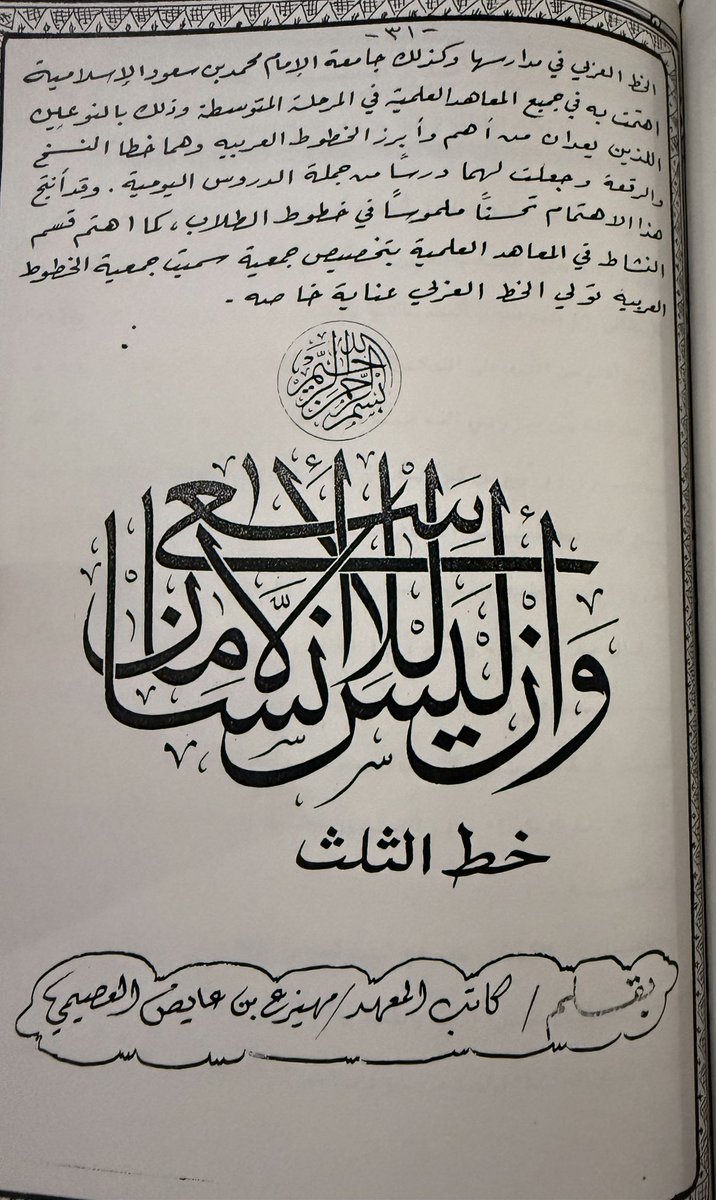 -٣١-
الخط العربي في مدارسها وكذلك جامعة الإمام محمد بن سعود الإسلامية
اهتمت به في جميع المعاهد العلمية في المرحلة المتوسطة وذلك بالنوعين
اللذين يعدان من أهم وأبرز الخطوط العربيه وهما خطا النسخ
والرقعة وجعلت لهما درساً من جملة الدروس اليومية . وقد أنتج
هذا الاهتمام تحسناً ملموساً في خطوط الطلاب ، كما اهتم قسم
النشاط في المعاهد العلمية بتخصيص جمعية سميت جمعية الخطوط
العربيه تولي الخط العربي عناية خاصه .
بسم الله الرحمن الرحيم
وأن ليس للإنسان إلا ما سعى
خط الثلث
بقلم / كاتب المعهد / مهيزع بن عايض العصيمي